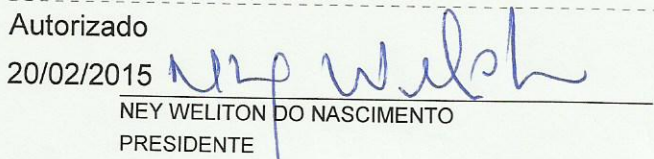 Autorizado
20/02/2015 Ney Welit
NEY WELITON DO NASCIMENTO
PRESIDENTE